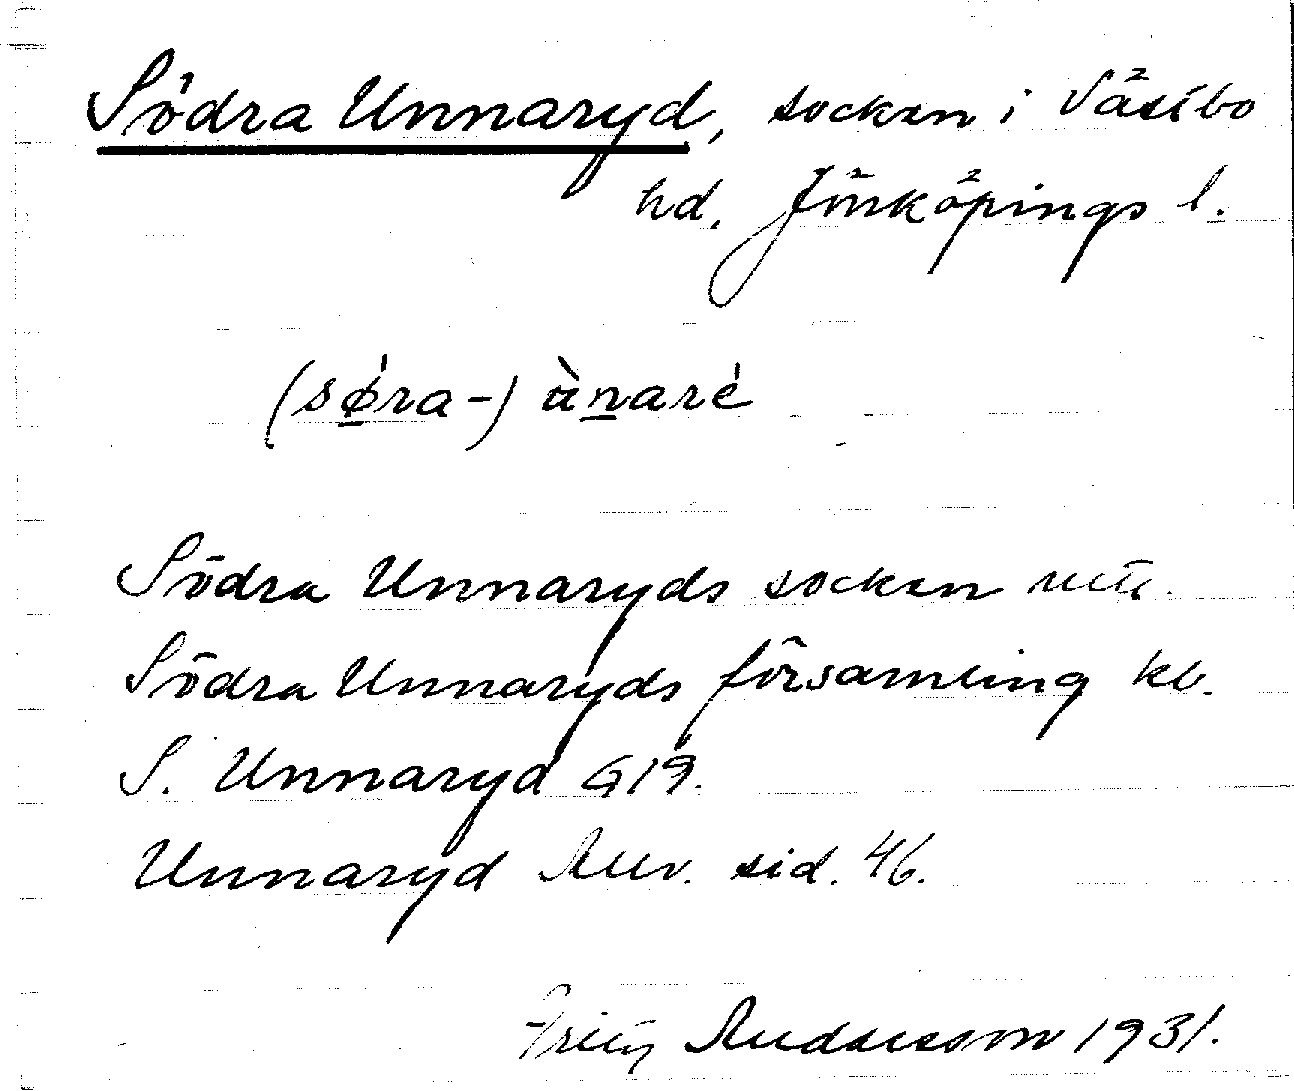 Södra Unnaryd, socken i Västbo
hd. Jönköpings l.
(søra-) ùnaré
Södra Unnaryds socken
Södra Unnaryds församling kb.
S. Unnaryd G19.
Unnaryd sid. 46.
Andersson 1931.